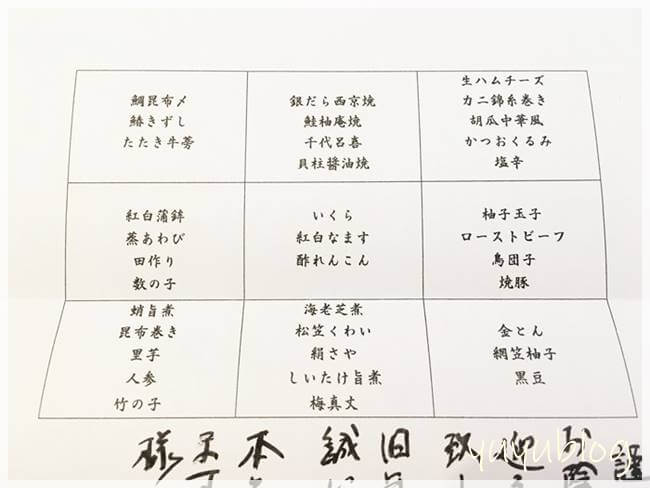 鯛昆布〆
鰆きずし
たたき牛蒡
銀だら西京焼
鮭柚庵焼
千代呂喜
貝柱醤油焼
生ハムチーズ
カニ錦糸巻き
胡瓜中華風
かつおくるみ
塩辛
紅白蒲鉾
蒸あわび
田作り
数の子
いくら
紅白なます
酢れんこん
柚子玉子
ローストビーフ
鳥団子
焼豚
蛸旨煮
昆布巻き
里芋
人参
竹の子
海老芝煮
松笠くわい
絹さや
しいたけ旨煮
梅真丈
金とん
網笠柚子
黒豆
謹
迎
旧
誠
本
様
yuyublog